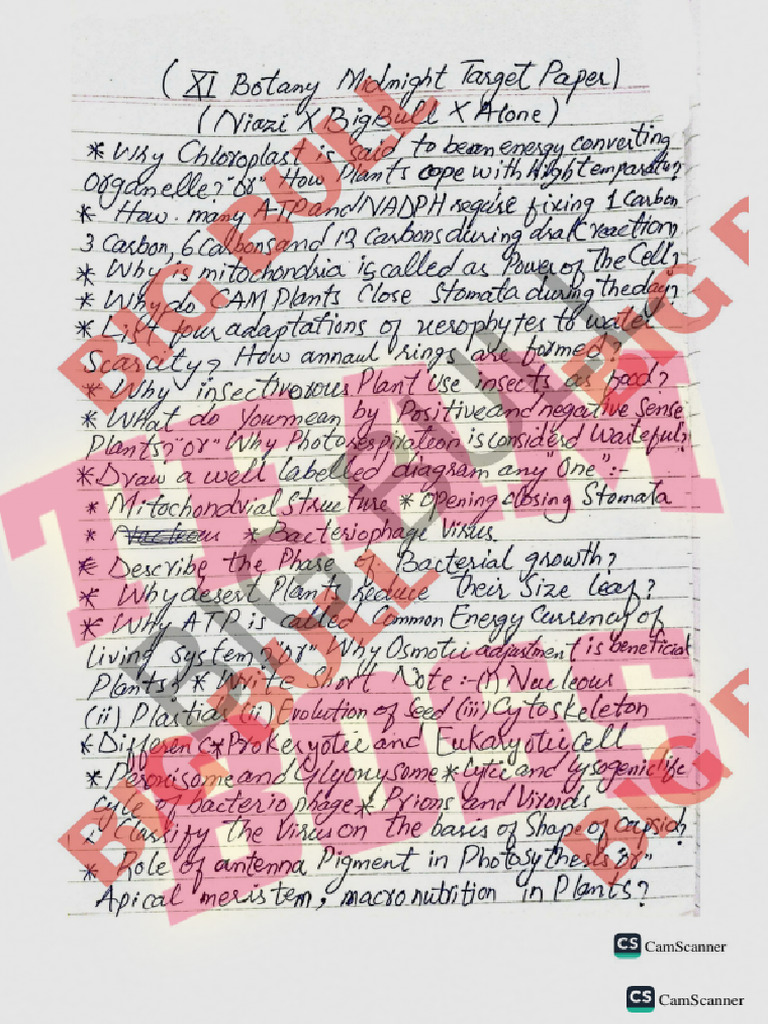 ( XI Botany Midnight Target Paper)
(Niazi X BigBull X Alone)
* Why Chloroplast is said to be an energy converting
organelle? "or" How Plants cope with high temparatur?
* How many ATP and NADPH require fixing 1 Carbon
3 Carbon, 6 Carbons and 12 Carbons during drak reaction
* Why is mitochondria is called as Power of The Cell?
* Why do CAM Plants Close Stomata during the day?
* List four adaptations of xerophytes to water
Scarcity? How annaul rings are formed?
* Why insectivorous Plant Use insects as food?
* What do you mean by Positive and negative Sense
Plants? "or" Why Photorespiration is considerd Wasteful?
* Draw a well labelled diagram any "One" :-
* Mitochondrial structure * opening closing Stomata
* Nucleous * Bacteriophage Virus.
* Describe the Phase of Bacterial growth?
* Why desert Plants Reduce Their Size leaf?
* Why ATP is called Common Energy Currency of
living system? "or" Why Osmotic adjustment is beneficial
Plants? * Write short Note :- (i) Nucleous
(ii) Plastid (ii) Evolution of Seed (iii) Cytoskeleton
* Differenc * Prokeryotic and Eukaryotic Cell
* Peroxisome and Glyoxysome * Lytic and lysogenic life
cycle of bacteriophage * Prions and Viroids
* Classify the Virus on the basis of Shape of capsid?
* Role of antenna Pigment in Photosythesis "or"
Apical meristem, macronutrition in Plants?
BIG BULL
BIG BULL
BIG BULL
TEAM
BOSS
BIG B
BIG B
CS CamScanner
CS CamScanner